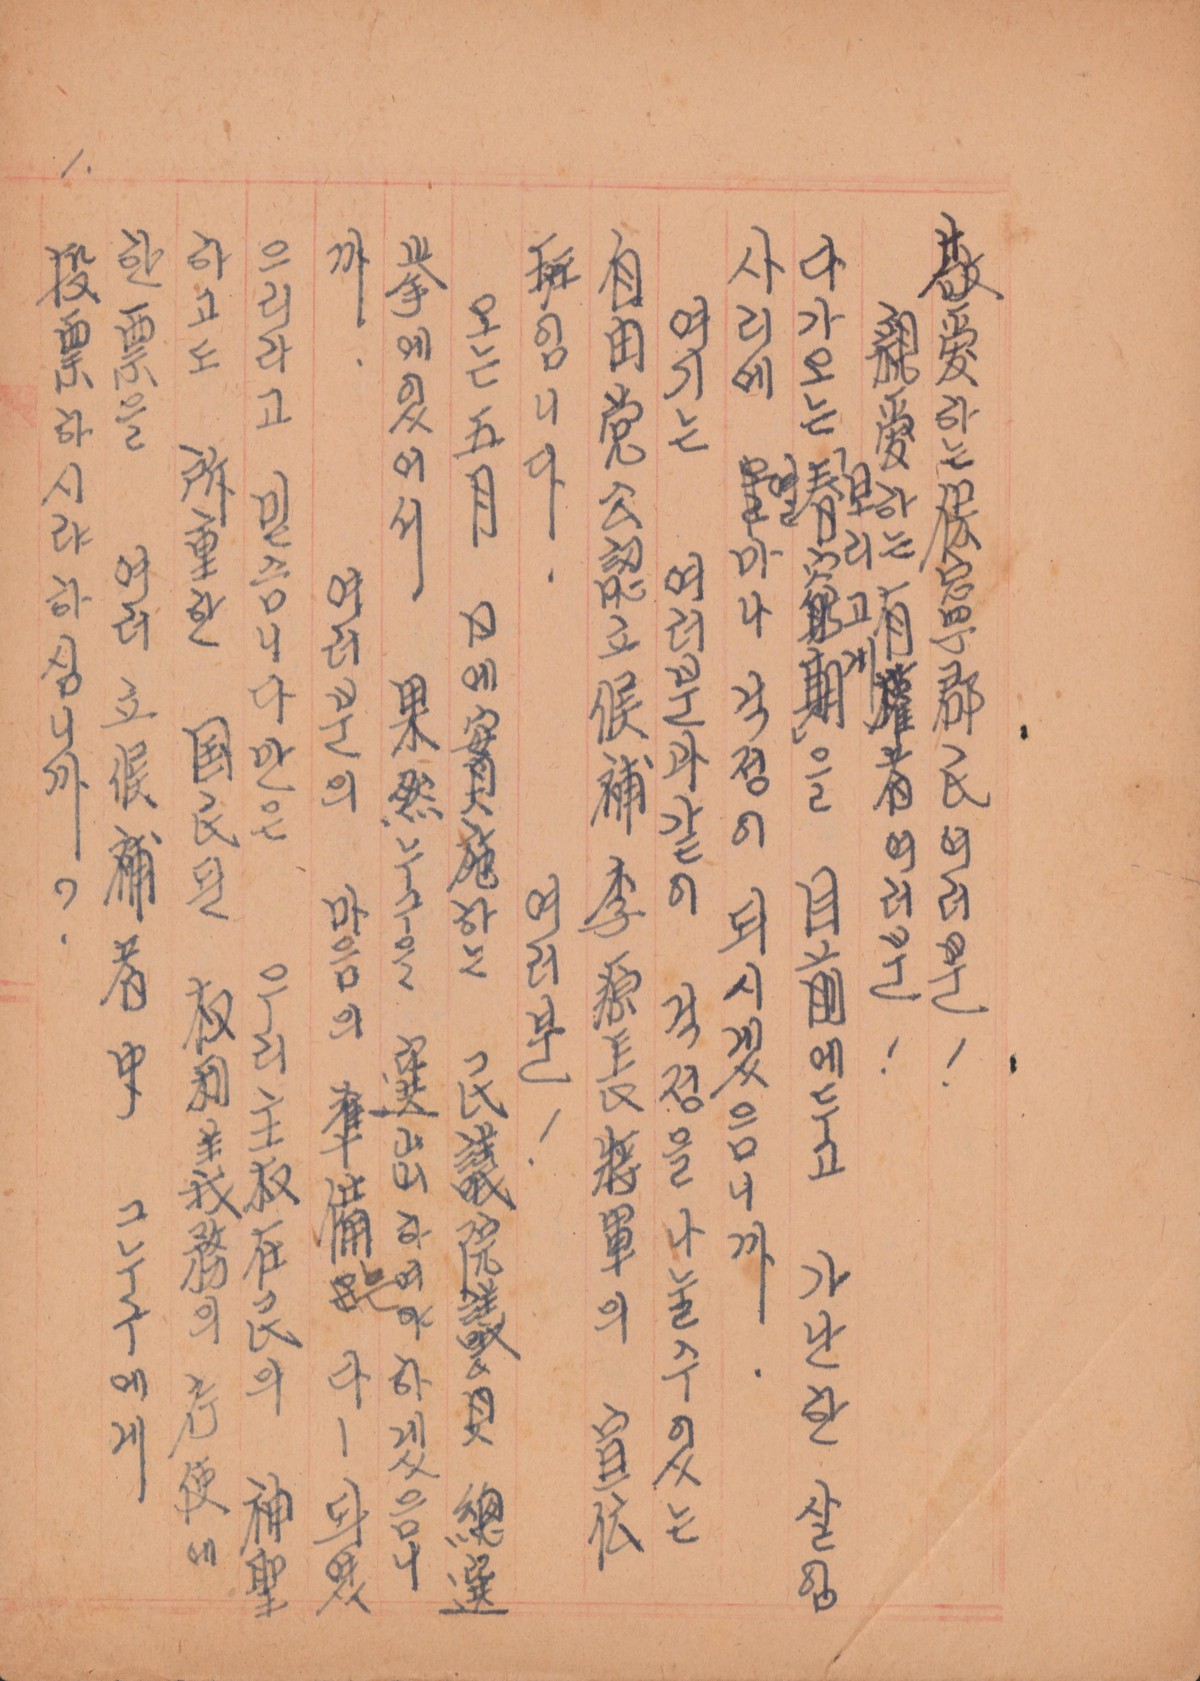 敬愛하는 保寧郡民여러분!
親愛하는 有權者여러분!
다가오는 春窮期을 目前에두고 가난한 살림
보리고개
사리에 얼마나 걱정이 되시겠음니까.
여기는 여러분과같이 걱정을 나눌수있는
自由党公認立候補 李源長將軍의 宣伝
班임니다. 여러분!
오는 五月 日에 實施하는 民議院議員 總選
挙에있어서 果然 누구을 選出하여야 하겠음니
까. 여러분의 마음의 準備는 다ー되였
으리라고 믿슴니다만은 우리 主权在民의 神聖
하고도 所重한 国民된 权利義務의 行使에
한票을 여러 立候補者中 그누구에게
投票하시랴하심니까?.
1.